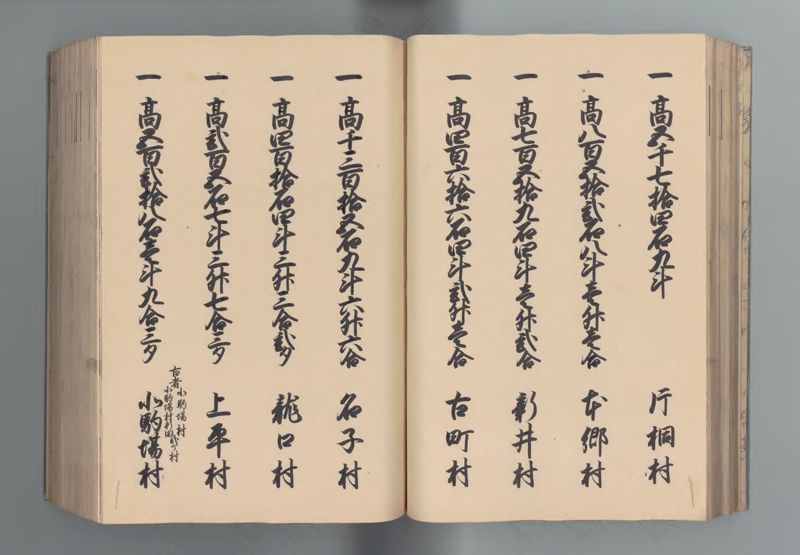 一 高五千七拾四石九斗 片桐村
一 高八百五拾弐石八斗壱升壱合 本郷村
一 高七百五拾九石四斗壱升弐合 新井村
一 高四百六拾六石四斗弐升壱合 古町村
一 高千三百拾五石九斗六升六合 名子村
一 高四百拾石四斗三升三合弐夕 龍口村
一 高弐百五石七斗三升七合三夕 上平村
古者小駒場村
小駒場村新田弐ケ村
一 高五百弐拾八石壱斗九合三夕 小駒場村